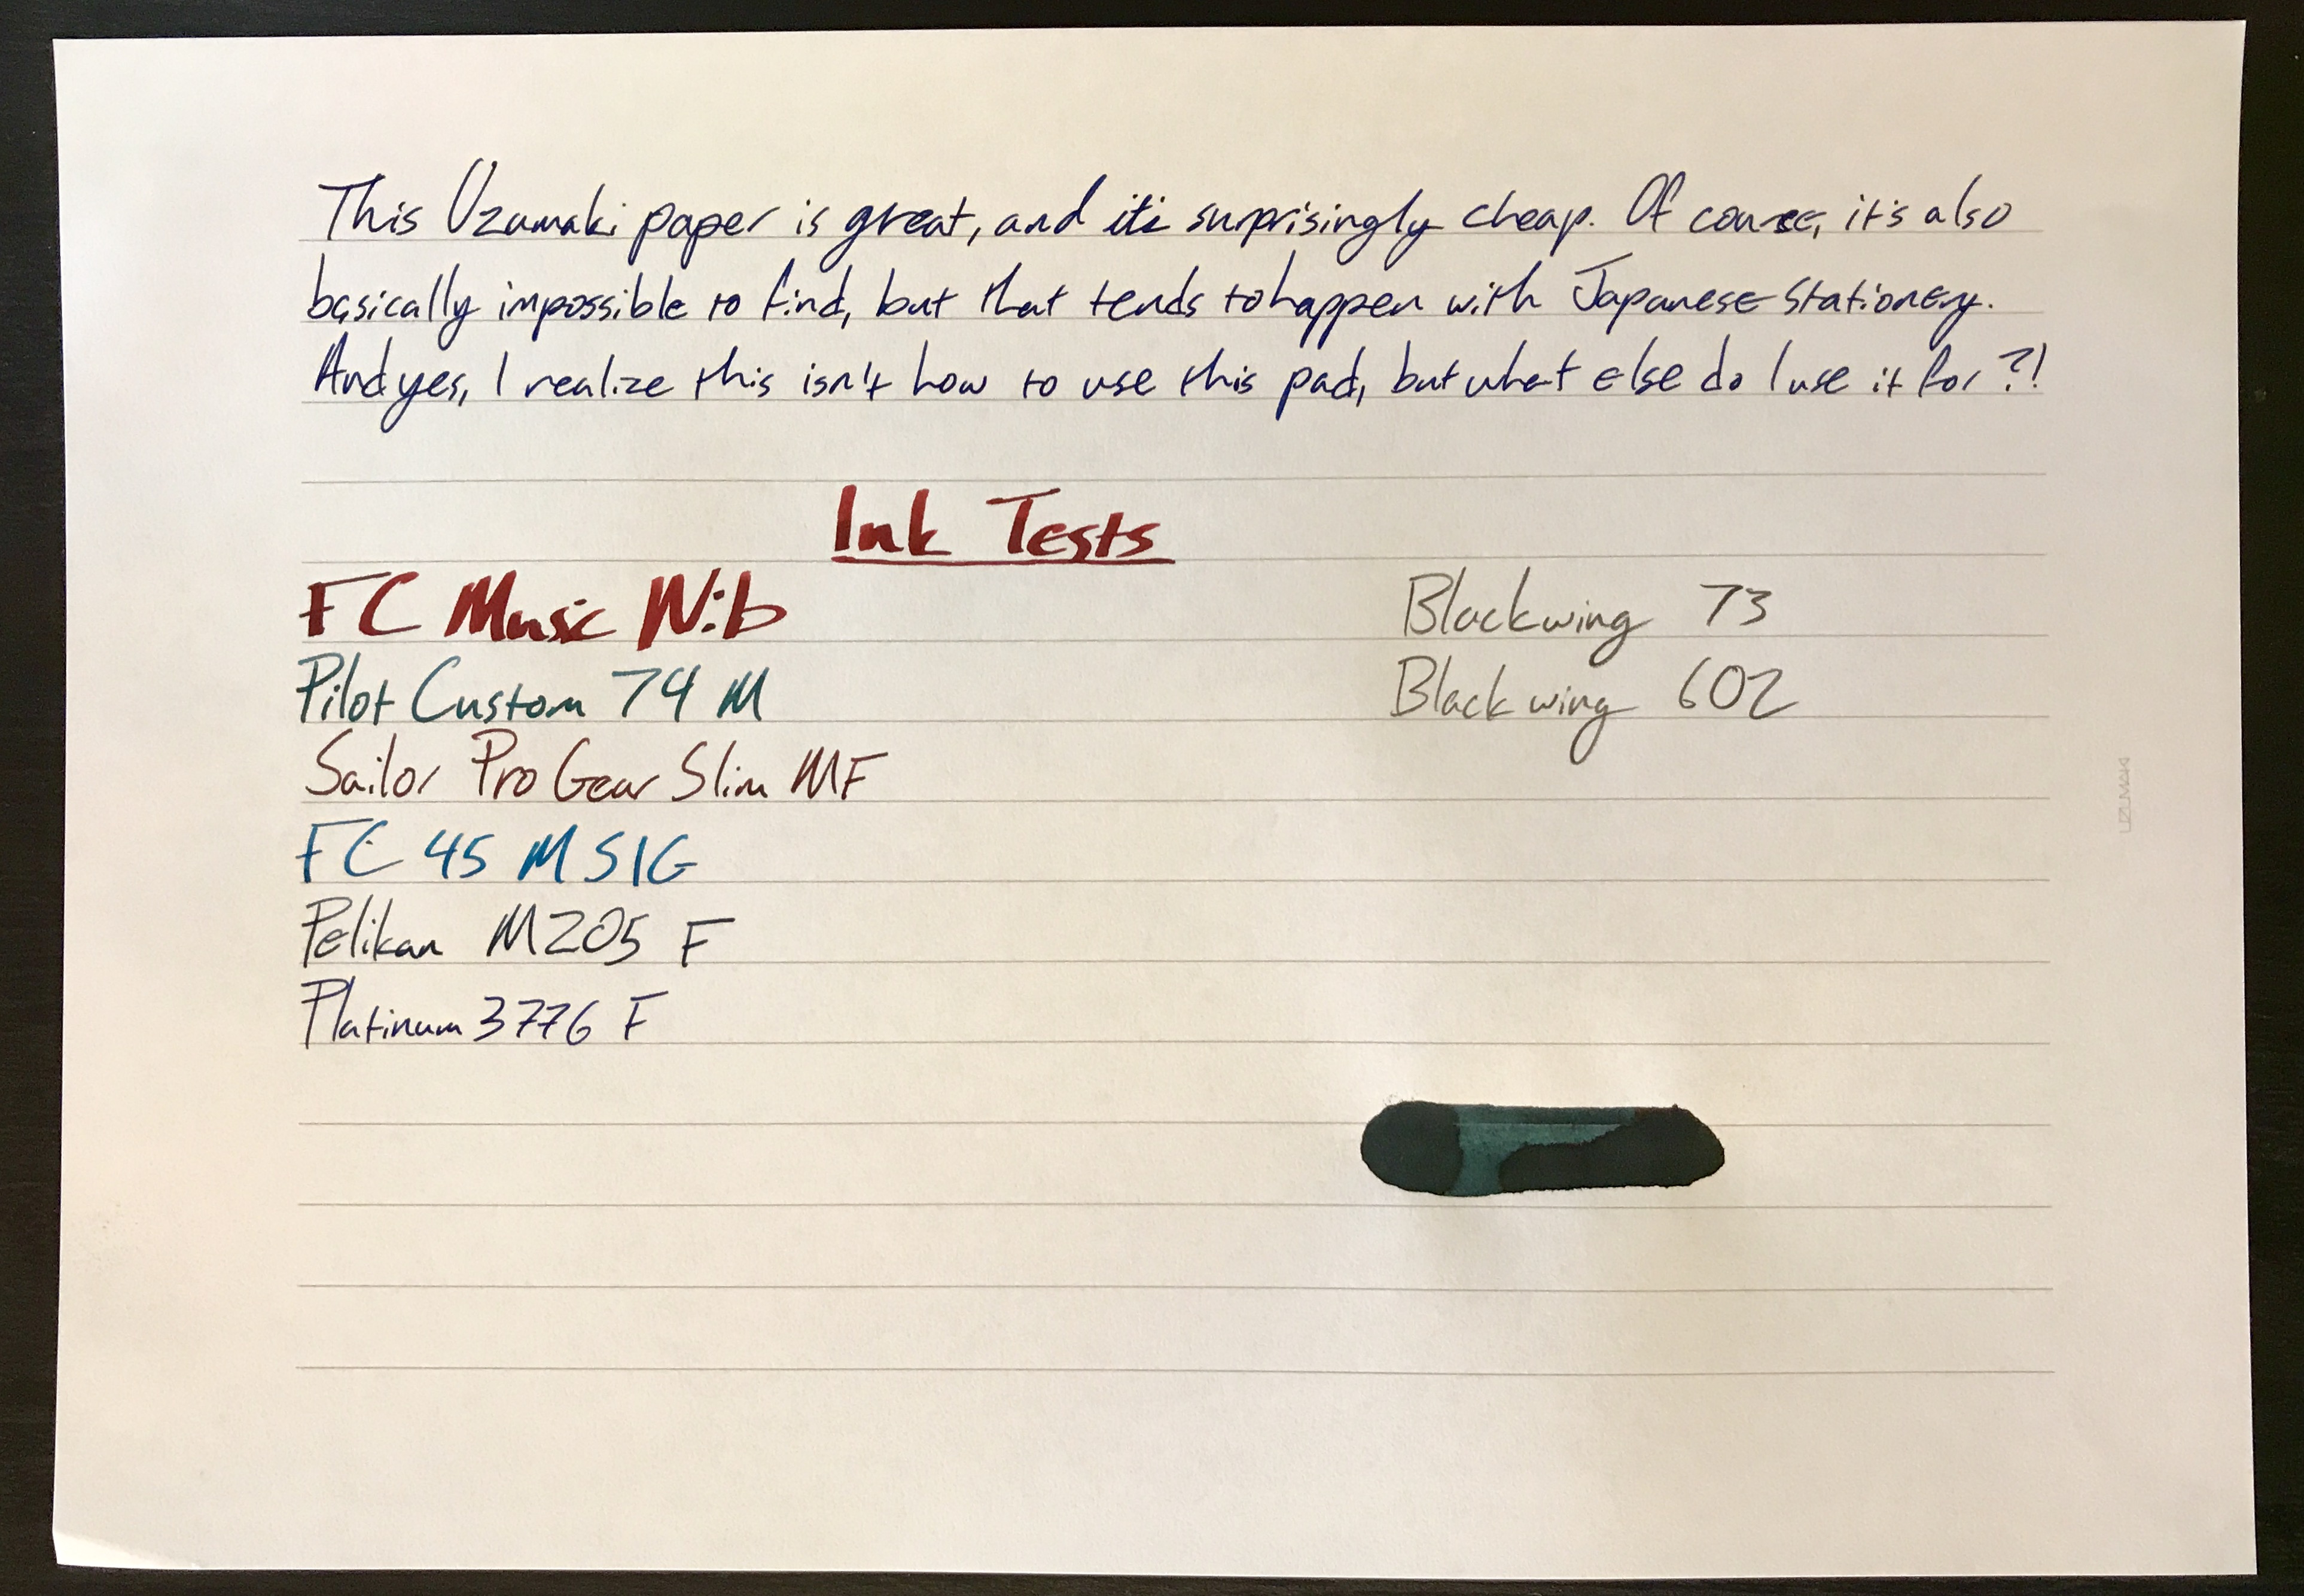 This Uzumaki paper is great, and it's surprisingly cheap. Of course, it's also
basically impossible to find, but that tends to happen with Japanese stationery.
And yes, I realize this isn't how to use this pad, but what else do I use it for?!
Ink Tests
FC Music Nib
Blackwing 73
Pilot Custom 74 M
Blackwing 602
Sailor Pro Gear Slim MF
FC 45 M SIG
Pelikan M205 F
Platinum 3776 F
UZUMAKI